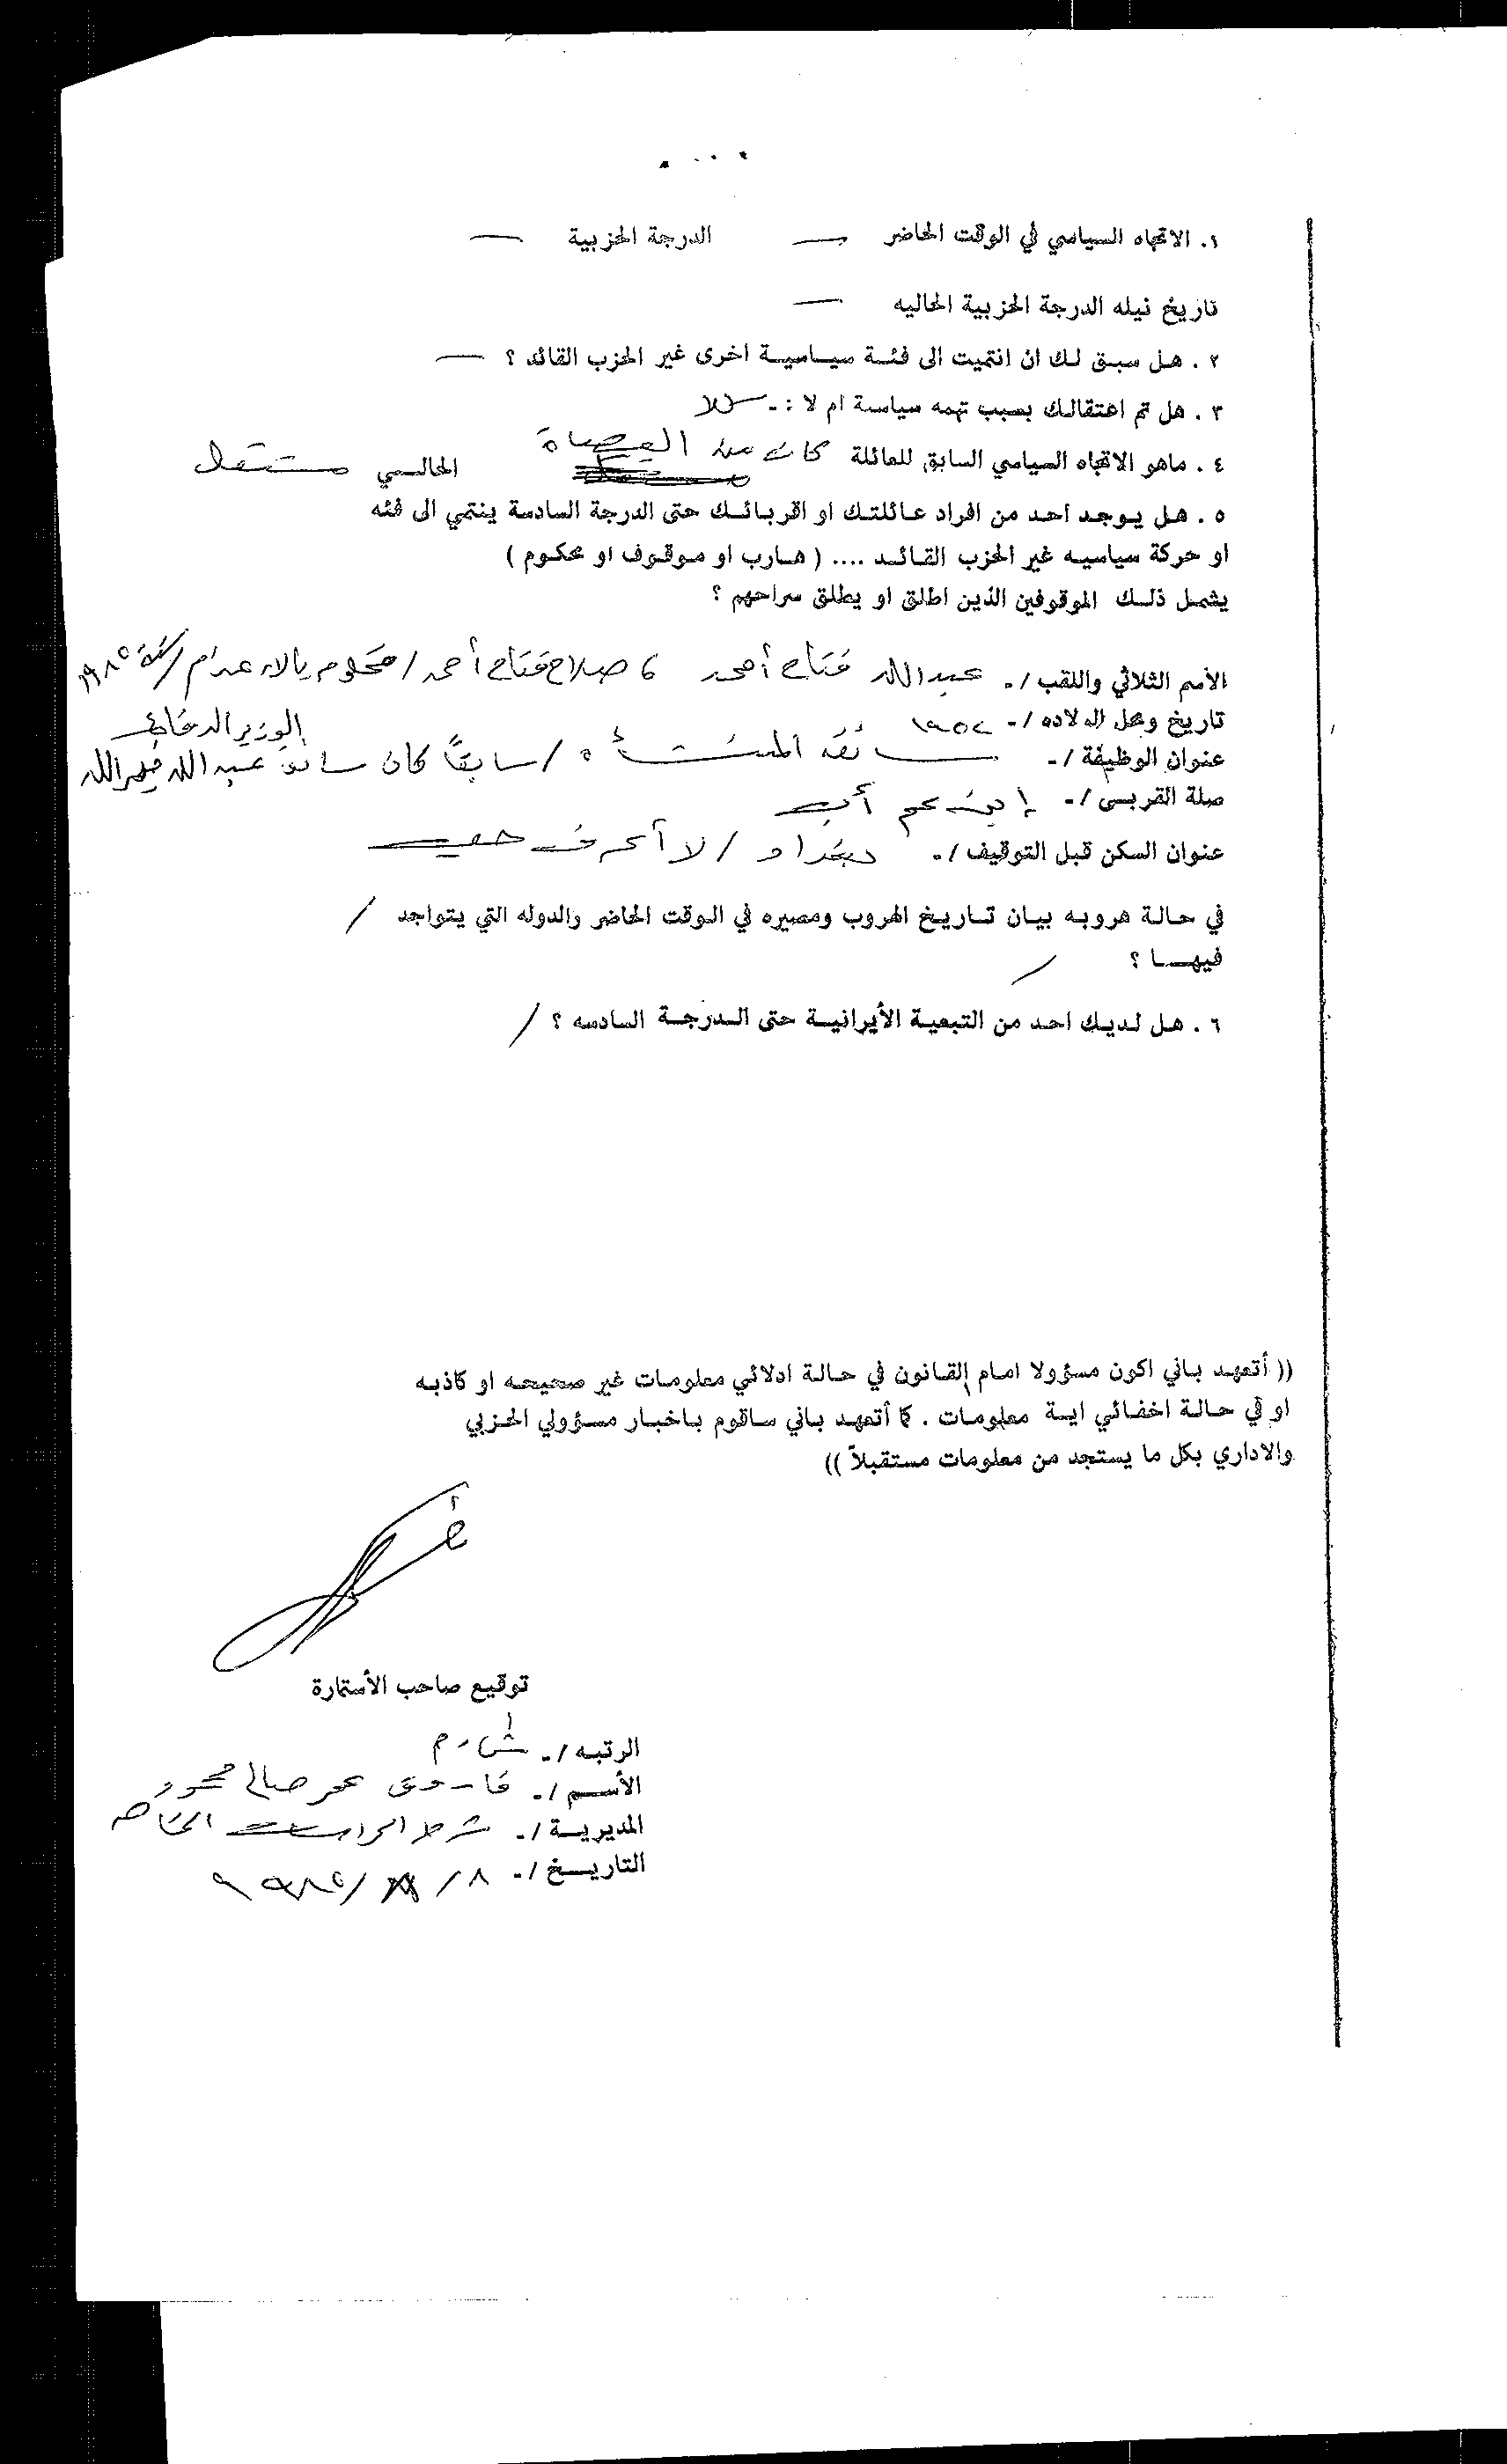 ١. الاتجاه السياسي في الوقت الحاضر — الدرجة الحزبية —
تاريخ نيله الدرجة الحزبية الحاليه —
٢. هـل سبـق لـك ان انتميت الى فئـة سيـاسيـة اخرى غير الحزب القائد ؟ —
٣. هل تم اعتقالك بسبب تهمه سياسة ام لا :ـ كلا
٤. ماهو الاتجاه السياسي السابق للعائلة كانت من العصاة الحالـي مستقل
٥. هـل يـوجـد احـد من افراد عـائلتـك او اقربـائـك حتى الدرجة السادسة ينتمي الى فئه
او حركة سياسيه غير الحزب القـائـد .... ( هـارب او مـوقـوف او محكوم )
يشمـل ذلـك الموقوفين الذين اطلق او يطلق سراحهم ؟
الأسم الثلاثي واللقب /ـ عبدالله فتاح أحمد ، صلاح فتاح أحمد / محكوم بالاعدام / سنة ١٩٨٥
تاريخ ومحل الولاده /ـ ١٩٥٢
عنوان الوظيفة /ـ سائق المنشأة / سابقاً كان سائق عبدالله الوزير
صلة القربـى /ـ إبن عم أب
عنوان السكن قبل التوقيف /ـ بغداد / لا أعرف
في حـالـة هروبـه بيـان تـاريـخ الهروب ومصيره في الـوقت الحاضر والدوله التي يتواجد /
فيهـا ؟ /
٦. هـل لـديـك احـد من التبعيـة الأيرانيـة حتى الـدرجـة السادسه ؟ /
(( أتعهـد بـاني اكون مسؤولا امـام القـانون في حـالـة ادلائي معلومـات غير صحيحـه او كاذبـه
او في حـالـة اخفـائي ايـة معلومـات . كما أتعهـد بـاني سـاقوم بـاخبـار مسـؤولي الحـزبي
والاداري بكل ما يستجد من معلومات مستقبلاً ))
توقيع صاحب الأستمارة
الرتبـه /ـ
الأسـم /ـ فاروق عمر صالح محمود
المديريـة /ـ الخاصه
التاريـخ /ـ ٨ / / ١٩٨٥